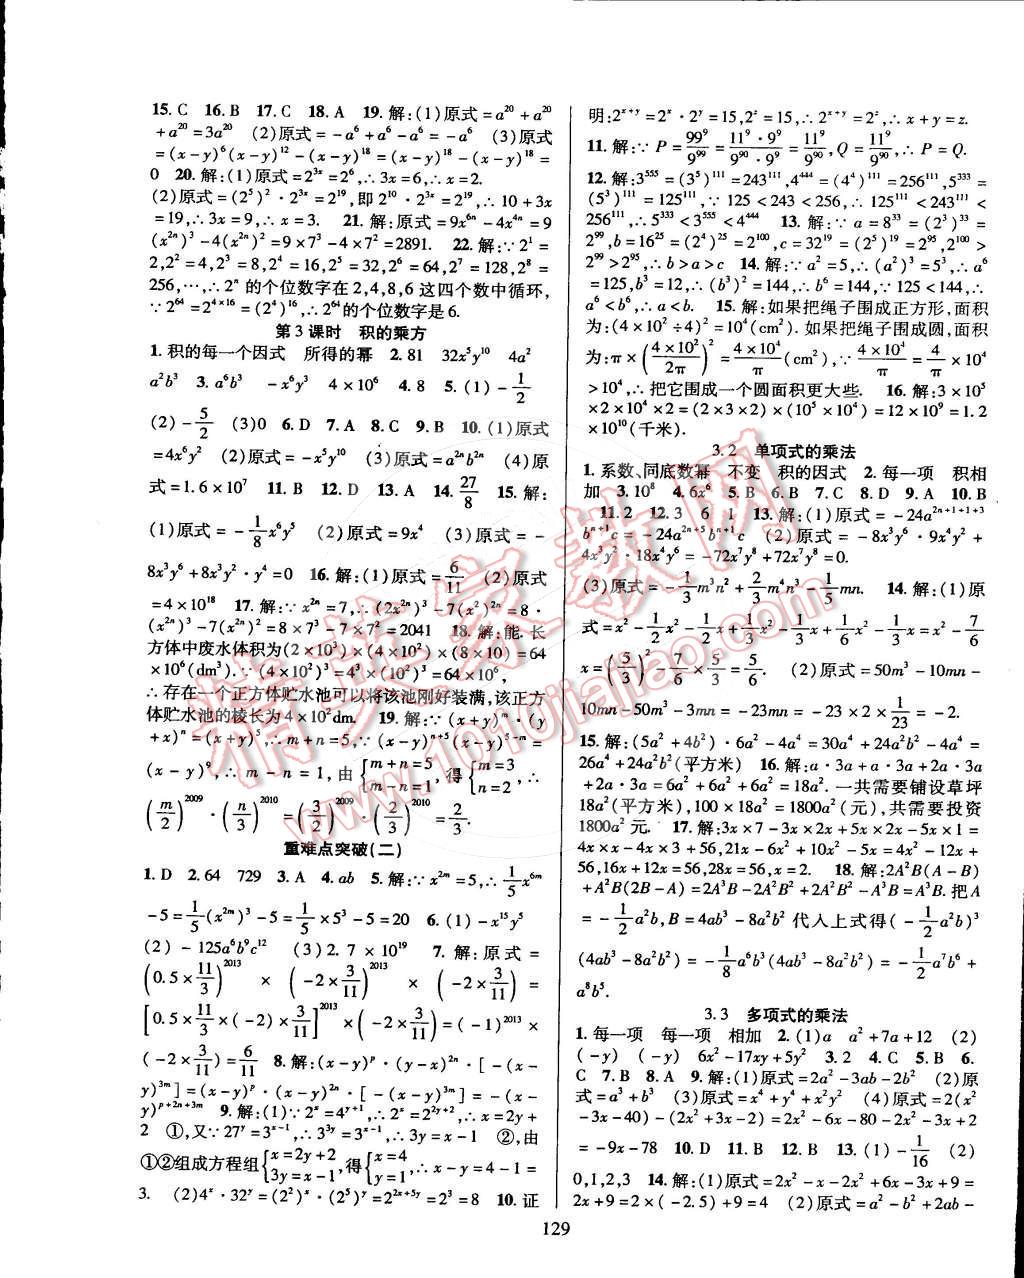 15. C 16. B 17. C 18. A 19. 解:(1)原式=a²⁰+a²⁰
+a²⁰=3a²⁰ (2)原式=-a⁶+a⁶-a⁶=-a⁶ (3)原式
=(x-y)⁶(x-y)¹²-(x-y)¹⁸=(x-y)¹⁸-(x-y)¹⁸=
0 20. 解:(1)原式=2³ˣ=2⁶,∴3x=6,∴x=2.
(2)原式=(2⁵)²·2³ˣ=2¹⁹,即2¹⁰·2³ˣ=2¹⁹,∴10+3x
=19,∴3x=9,∴x=3. 21. 解:原式=9x⁶ⁿ-4x⁴ⁿ=9
(x²ⁿ)³-4(x²ⁿ)²=9×7³-4×7²=2891. 22. 解:∵2¹=
2,2²=4,2³=8,2⁴=16,2⁵=32,2⁶=64,2⁷=128,2⁸=
256,⋯,∴2ⁿ的个位数字在2,4,8,6这四个数中循环,
∵2⁶⁴=2⁴ˣ¹⁶=(2⁴)¹⁶,∴2⁶⁴的个位数字是6.
第3课时 积的乘方
1. 积的每一个因式 所得的幂 2. 81 32x⁵y¹⁰ 4a²
a²b³ 3. a⁶b³ -x⁶y³ 4×10⁶ 4. 8 5. (1)-1/2
(2)-5/2 (3)0 6. D 7. A 8. C 9. B 10. (1)原式
=4x⁶y² (2)原式=-x⁵y¹⁰ (3)原式=a²ⁿb²ⁿ (4)原
式=1.6×10⁷ 11. B 12. D 13. A 14. 27/8 15. 解:
(1)原式=-1/8x⁶y⁵ (2)原式=9x⁴ (3)原式=-
8x³y⁶+8x³y²·y⁴=0 16. 解:(1)原式=6/11 (2)原式
=4×10¹⁸ 17. 解:∵x²ⁿ=7,∴(2x²ⁿ)³-7(x²)²ⁿ=8·
(x²ⁿ)³-7(x²ⁿ)²=8×7³-7×7²=2041 18. 解:能. 长
方体中废水体积为(2×10³)×(4×10²)×(8×10)=64
×10⁶(dm³).∵4³×(10²)³=64×10⁶,
∴存在一个正方体贮水池可以将该池刚好装满,该正方
体贮水池的棱长为4×10²dm. 19. 解:∵(x+y)ᵐ·(y
+x)ⁿ=(x+y)⁵,∴m+n=5,∵(x-y)ⁿ⁺⁵(x-y)⁵⁻ᵐ=
(x-y)⁹,∴m-n=1,由{m+n=5 m-n=1,得{m=3 n=2,∴
(m/2)²⁰⁰⁹·(n/3)²⁰¹⁰=(3/2)²⁰⁰⁹×(2/3)²⁰¹⁰=2/3.
重难点突破(二)
1. D 2. 64 729 3. A 4. ab 5. 解:∵x²ᵐ=5,∴1/5x⁶ᵐ
-5=1/5(x²ᵐ)³-5=1/5×5³-5=20 6. (1)-x¹⁵y⁵
(2)-125a⁶b⁹c¹² (3)2.7×10¹⁹ 7. 解:原式=
(0.5×11/3)²⁰¹³×(-2×3/11)²⁰¹³×(-2×3/11)=
[0.5×11/3×(-2)×3/11]²⁰¹³×(-2×3/11)=(-1)²⁰¹³×
(-2×3/11)=6/11 8. 解:(x-y)ᵖ·(y-x)²ⁿ·[-(x-
y)³ᵐ]=(x-y)ᵖ·(x-y)²ⁿ·[-(x-y)³ᵐ]=-(x-
y)ᵖ⁺²ⁿ⁺³ᵐ 9. 解:(1)∵2ˣ=4ʸ⁺¹,∴2ˣ=2²ʸ⁺²,∴x=2y+
2 ①,又∵27ʸ=3ˣ⁻¹,∴3³ʸ=3ˣ⁻¹,∴3y=x-1 ②,由
①②组成方程组{x=2y+2 3y=x-1,得{x=4 y=1,∴x-y=4-1=
3. (2)4ˣ·32ʸ=(2²)ˣ·(2⁵)ʸ=2²ˣ⁺⁵ʸ=2³=8 10. 证
明:2ˣ⁺ʸ=2ˣ·2ʸ=15,2ᶻ=15,∴2ˣ⁺ʸ=2ᶻ,∴x+y=z.
11. 解:∵P=99⁹/9⁹⁹=11⁹·9⁹/9⁹⁰·9⁹=11⁹/9⁹⁰,Q=11⁹/9⁹⁰,∴P=Q.
12. 解:3⁵⁵⁵=(3⁵)¹¹¹=243¹¹¹,4⁴⁴⁴=(4⁴)¹¹¹=256¹¹¹,5³³³=
(5³)¹¹¹=125¹¹¹,∵125<243<256,∴125¹¹¹<243¹¹¹<
256¹¹¹,∴5³³³<3⁵⁵⁵<4⁴⁴⁴ 13. 解:∵a=8³³=(2³)³³=
2⁹⁹,b=16²⁵=(2⁴)²⁵=2¹⁰⁰,c=32¹⁹=(2⁵)¹⁹=2⁹⁵,2¹⁰⁰>
2⁹⁹>2⁹⁵,∴b>a>c 14. 解:∵a²=5,∴(a²)³=5³,∴a⁶
=125,b³=12,∴(b³)²=144,∴b⁶=144,∵125<144,∴
a⁶<b⁶,∴a<b. 15. 解:如果把绳子围成正方形,面积
为:(4×10²÷4)²=10⁴(cm²). 如果把绳子围成圆,面积
为:π×(4×10²/2π)²=4×10⁴/π(cm²),∵4×10⁴/π=4/π×10⁴
>10⁴,∴把它围成一个圆面积更大些. 16. 解:3×10⁵
×2×10⁴×2=(2×3×2)×(10⁵×10⁴)=12×10⁹=1.2
×10¹⁰(千米).
3.2 单项式的乘法
1. 系数、同底数幂 不变 积的因式 2. 每一项 积相
加 3. 10⁸ 4. 6x⁶ 5. B 6. B 7. C 8. D 9. A 10. B
11. 2 12. 3 6 1 13. 解:(1)原式=-24a²ⁿ⁺¹⁺¹⁺³
bⁿ⁺¹c=-24a²ⁿ⁺⁵bⁿ⁺¹c (2)原式=-8x³y⁶·9x⁴y²+
4x³y²·18x⁴y⁶=-72x⁷y⁸+72x⁷y⁸=0.
(3)原式=-1/3m³n²+2/3m⁴n³-1/5mn. 14. 解:(1)原
式=x²-1/2x²-1/2x+1/3x²-1/3x+1/6x²-1/3x=x²-7/6
x=(5/3)²-7/6×5/3=5/6. (2)原式=50m³-10mn-
10mn-50m³-3mn=-23mn=-23×2×1/23=-2.
15. 解:(5a²+4b²)·6a²-4a⁴=30a⁴+24a²b²-4a⁴=
26a⁴+24a²b²(平方米) 16. 解:a·3a+a·3a+2a·3a
+2a·3a=3a²+3a²+6a²+6a²=18a². 一共需要铺设草坪
18a²(平方米),100×18a²=1800a²(元),共需要投资
1800a²元. 17. 解:3x×7-3x×2x+5x×2x-2x×5x×1=
4x×x-4x×3+56,21x-6x²+10x²-5x=4x²-12x+
56,16x+12x=56,28x=56,x=2. 18. 解:2A²B(A-B)
+A²B(2B-A)=2A³B-2A²B²+2A²B²-A³B=A³B. 把A
=-1/2a²b,B=4ab³-8a²b²代入上式得(-1/2a²b)³
(4ab³-8a²b²)=-1/8a⁶b³(4ab³-8a²b²)=-1/2a⁷b⁶+
a⁸b⁵.
3.3 多项式的乘法
1. 每一项 每一项 相加 2. (1)a a²+7a+12 (2)
(-y) (-y) 6x²-17xy+5y² 3. 2 4. C 5. B 6.
C 7. B 8. A 9. 解:(1)原式=2a²-3ab-2b² (2)原
式=a³+b³ (3)原式=x⁴+y⁴+x²y² (4)原式=2(x²
-3x-40)-(2x²+3x-2)=2x²-6x-80-2x²-3x+2
=-9x-78 10. D 11. B 12. B 13. (1)-1/16 (2)
0,1,2,3 14. 解:(1)原式=2x²-x-2x²+6x-3x+9=
2x+9=2×(-2.5)+9=4 (2)原式=a²-b²+2ab-
129
精英家教网
www.1010jiajiao.com